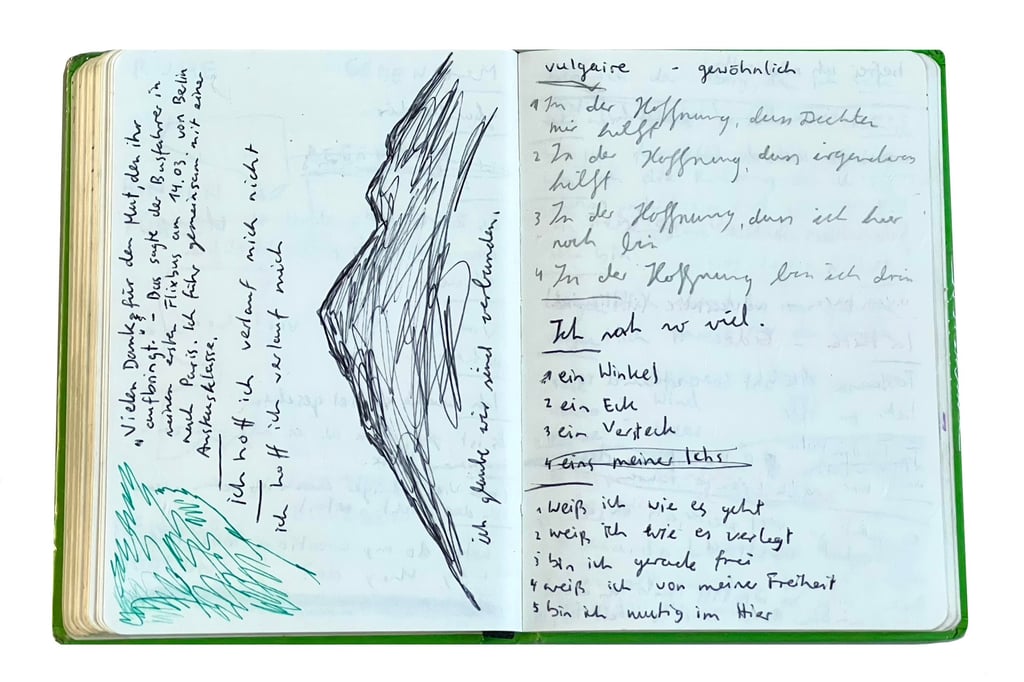 "Vielen Dank für den Mut, den ihr
aufbringt." Das sagte der Busfahrer in
meinen ersten Flixbus am 14.03. von Berlin
nach Paris. Ich fuhr gemeinsam mit einer
Austauschklasse.
ich hoff ich verlauf mich nicht
ich hoff ich verlauf mich
ich glaube wir sind verbunden.
vulgaire - gewöhnlich
1 In der Hoffnung, dass Dichten
mir hilft
2 In der Hoffnung, dass irgendwas
hilft
3 In der Hoffnung, dass ich hier
noch bin
4 In der Hoffnung bin ich drin
Ich nah so viel.
1 ein Winkel
2 ein Eck
3 ein Versteck
4 eins meiner Ichs
1 weiß ich wie es geht
2 weiß ich wie es verlegt
3 bin ich gerade frei
4 weiß ich von meiner Freiheit
5 bin ich mutig im Hier